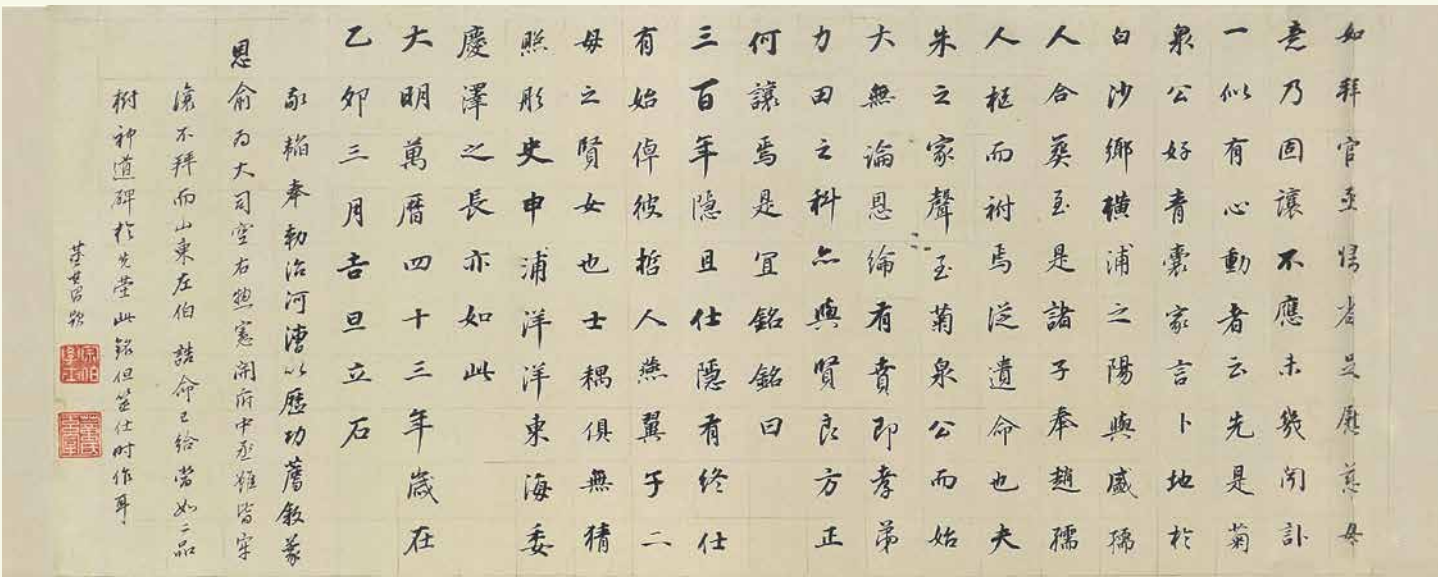 如拜官亟歸省足慰慈母
意乃固讓不應未幾聞訃
一似有心動者云先是菊
泉公好青囊家言卜地於
白沙鄉橫浦之陽與盛孺
人合葬至是諸子奉趙孺
人柩而祔焉從遺命也夫
朱之家聲至菊泉公而始
大無論恩綸有賁即孝弟
力田之科亦與賢良方正
何讓焉是宜銘銘曰
三百年隱且仕隱有終仕
有始倬彼哲人燕翼于二
母之賢女也士耦俱無猜
照彤史申浦洋洋東海委
慶澤之長亦如此
大明萬曆四十三年歲在
乙卯三月吉旦立石
敬韜奉勅治河漕以歷功薦敘蒙
恩俞為大司空右總憲開府中丞雖皆牢
讓不拜而山東左伯誥命已給當如二品
樹神道碑於先塋此銘但筮仕時作耳
董其昌題
宗伯學士
董氏玄宰